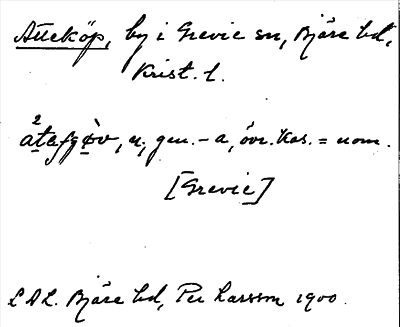 Atteköp, by i Grevie sn, Bjäre hd,
Krist. l.
n, gen. - a, övr. kas. = nom.
[Grevie]
LAL. Bjäre hd, Per Larsson 1900.